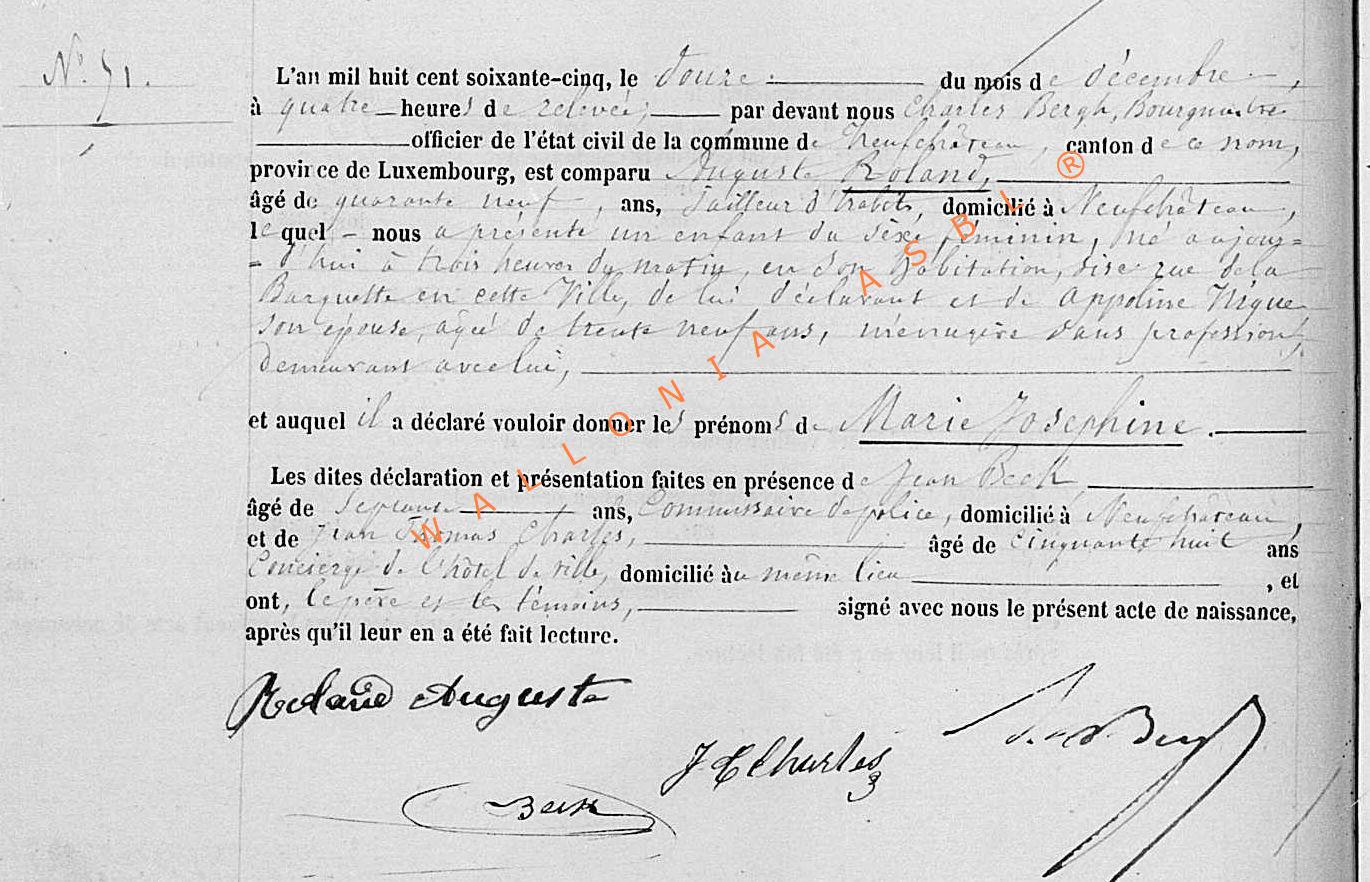 N° 71.
L'an mil huit cent soixante-cinq, le douze du mois de décembre,
à quatre heures de relevée, par devant nous Charles Bergh, Bourgmestre
officier de l'état civil de la commune de Neufchâteau, canton de ce nom,
province de Luxembourg, est comparu Auguste Roland,
âgé de quarante neuf, ans, tailleur d'habits, domicilié à Neufchâteau,
lequel nous a présenté un enfant du sexe féminin, né aujour=
= d'hui à trois heures du matin, en son habitation, sise rue de la
Barquette en cette Ville, de lui déclarant et de Appoline
son épouse, agée de trente neuf ans, ménagère dans profession,
demeurant avec lui,
et auquel il a déclaré vouloir donner les prénoms de Marie Josephine.
Les dites déclaration et présentation faites en présence de Jean Beck
âgé de septante ans, Commissaire de police, domicilié à Neufchâteau,
et de Jean Thomas Charles, âgé de cinquante huit ans
Concierge de l'hôtel de ville, domicilié au même lieu, et
ont, le père et les témoins, signé avec nous le présent acte de naissance,
après qu'il leur en a été fait lecture.
Roland Auguste
J T Charles
Beck
WALLONIA ASBL ®